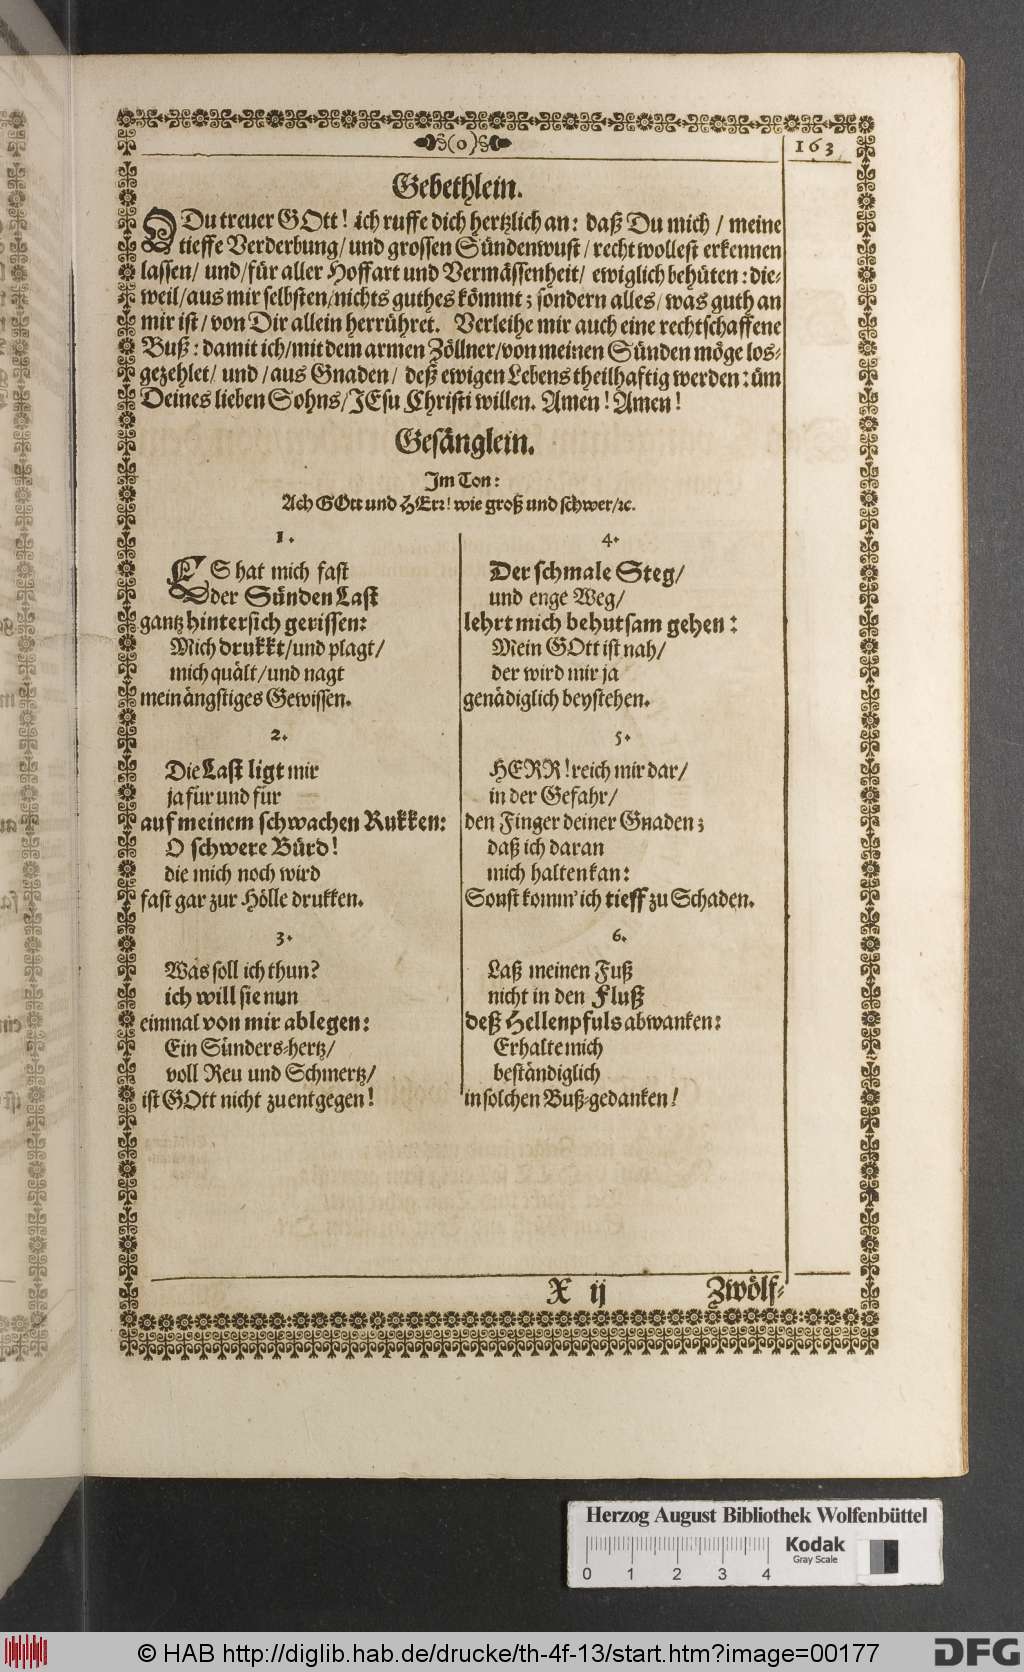 163
Gebethlein.
O Du treuer GOtt! ich ruffe dich hertzlich an: daß Du mich / meine
tieffe Verderbung/ und grossen Sündenwust / recht wollest erkennen
lassen/ und/ für aller Hoffart und Vermässenheit/ ewiglich behüten: die-
weil/ aus mir selbsten/ nichts guthes kömmt; sondern alles/ was guth an
mir ist/ von Dir allein herrühret. Verleihe mir auch eine rechtschaffene
Buß: damit ich/ mit dem armen Zöllner/ von meinen Sünden möge los-
gezehlet/ und / aus Gnaden/ deß ewigen Lebens theilhaftig werden: üm
Deines lieben Sohns/ JEsu Christi willen. Amen! Amen!
Gesänglein.
Im Ton:
Ach GOtt und HErr! wie groß und schwer/ ꝛc.
1.
ES hat mich fast
der Sünden Last
gantz hintersich gerissen:
Mich drukkt/ und plagt/
mich quält/ und nagt
mein ängstiges Gewissen.
2.
Die Last ligt mir
ja für und für
auf meinem schwachen Rukken:
O schwere Bürd!
die mich noch wird
fast gar zur Hölle drukken.
3.
Was soll ich thun?
ich will sie nun
einmal von mir ablegen:
Ein Sünders-hertz/
voll Reu und Schmertz/
ist GOtt nicht zu entgegen!
4.
Der schmale Steg/
und enge Weg/
lehrt mich behutsam gehen:
Mein GOtt ist nah/
der wird mir ja
genädiglich beystehen.
5.
HERR! reich mir dar/
in der Gefahr/
den Finger deiner Gnaden;
daß ich daran
mich halten kan:
Sonst komm' ich tieff zu Schaden.
6.
Laß meinen Fuß
nicht in den Fluß
deß Hellenpfuls abwanken:
Erhalte mich
beständiglich
in solchen Buß-gedanken!
X ij Zwölf-
Herzog August Bibliothek Wolfenbüttel
Kodak
Gray Scale
0 1 2 3 4
© HAB http://diglib.hab.de/drucke/th-4f-13/start.htm?image=00177
DFG